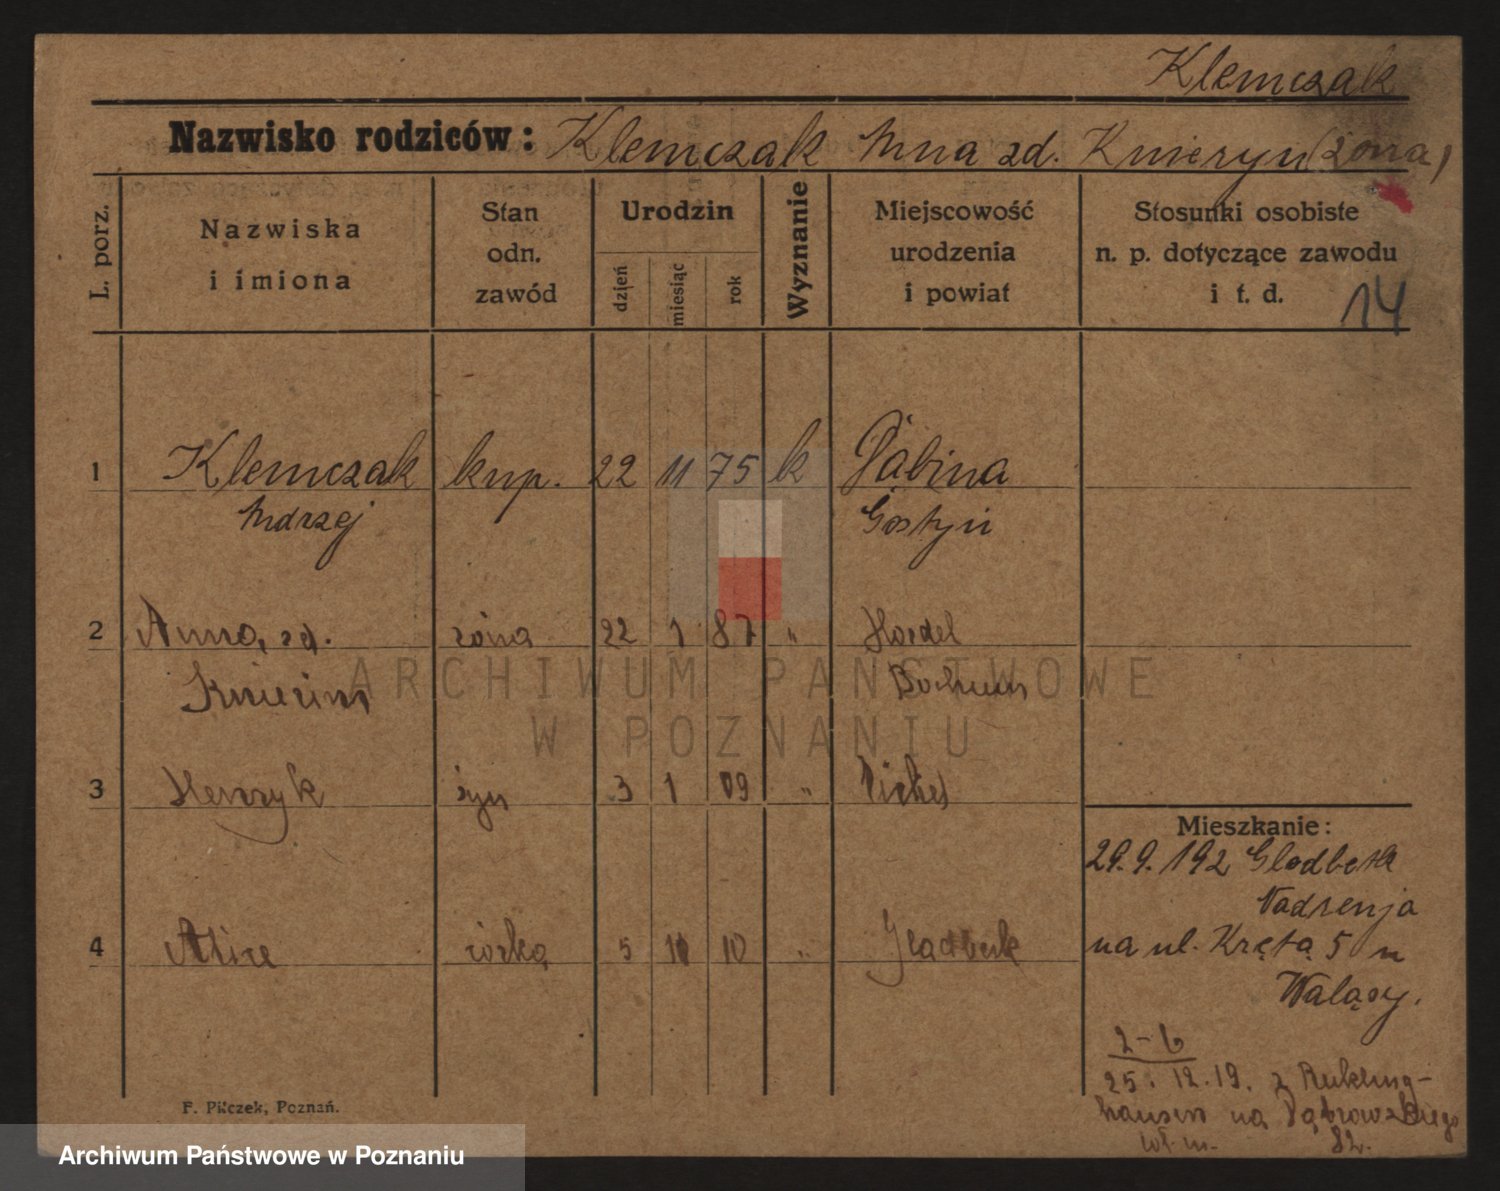 Klemczak
Nazwisko rodziców: Klemczak Anna zd. Knieryn (żona)
L. porz.
Nazwiska
i imiona
Stan
odn.
zawód
Urodzin
dzień
miesiąc
rok
Wyznanie
Miejscowość
urodzenia
i powiat
Stosunki osobiste
n. p. dotyczące zawodu
i t. d.
14
1 Klemczak kup. 22 11 75 k Dąbina
Andrzej Gostyń
2 Anna, zd. żona 22 1 87 " Hordel
Knierim Bochum
3 Henryk syn 3 1 09 "
4 Alice córka 5 10 10 " Gladbeck
Mieszkanie:
29.9.192 Gladbeck
Nadrenja
na ul. Krętą 5 u
Waląsy.
2-6
25. 12. 19. z Rekling-
hausen na Dąbrowskiego
82.
F. Pilczek, Poznań.
ARCHIWUM PAŃSTWOWE
W POZNANIU
Archiwum Państwowe w Poznaniu